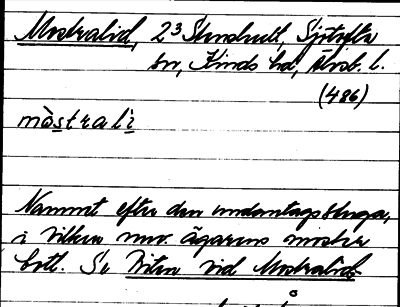 Mostralid, 2³ Stenshult, Sjötofta
sn, Kinds hd, Älvsb. l.
(486)
mòstrali
Namnet efter den undantagsstuga,
i vilken nuv. ägarens moster
bott. Se Vitra vid Mostralid.